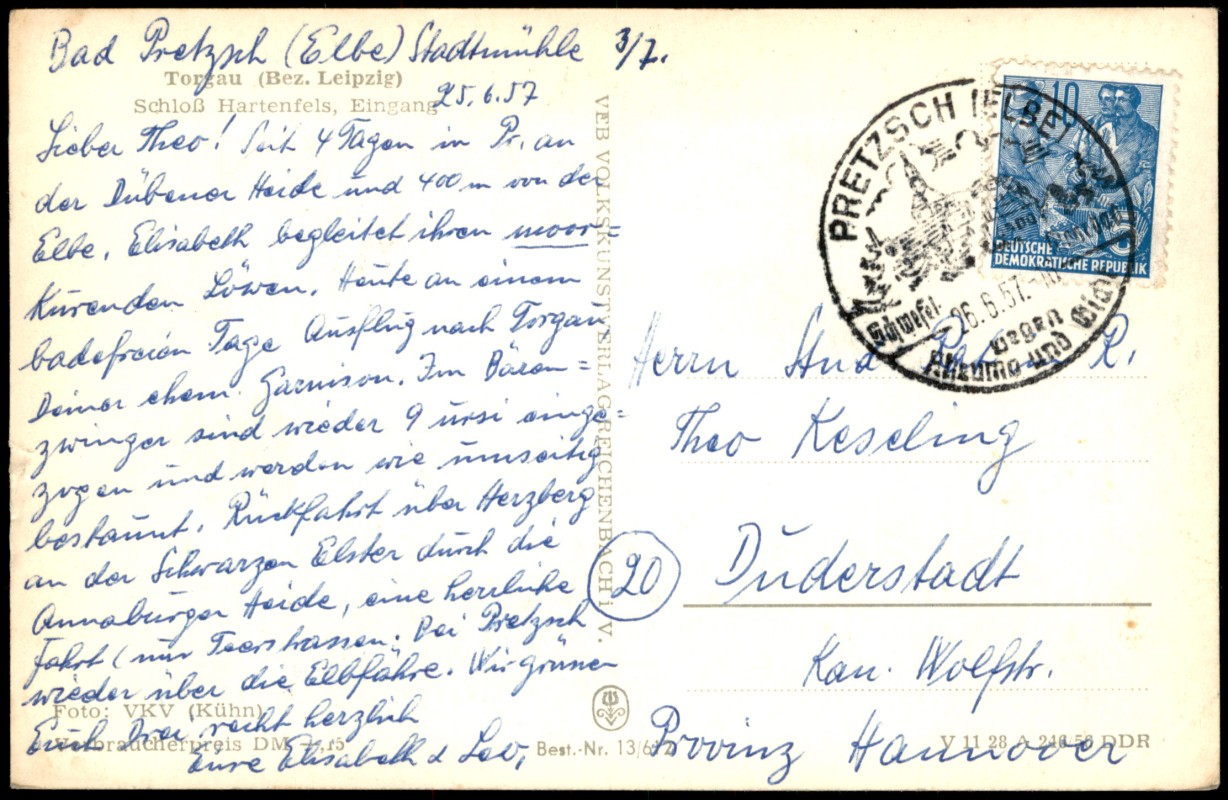 Bad Pretzsch (Elbe) Stadtmühle 3/7.
Torgau (Bez. Leipzig)
Schloß Hartenfels, Eingang
25.6.57
Lieber Theo! Seit 4 Tagen in Pr. an
der Dübener Heide und 400 m von der
Elbe. Elisabeth begleitet ihren moor=
kurenden Löwen. Heute an einem
badefreien Tage Ausflug nach Torgau
Deiner ehem. Garnison. Im Bären=
zwinger sind wieder 9 ursi einge=
zogen und werden wie umseitig
bestaunt. Rückfahrt über Herzberg
an der Schwarzen Elster durch die
Annaburger Heide, eine herrliche
Fahrt (nur Teerstrassen. Bei Pretzsch
wieder über die Elbfähre. Wir grüssen
Euch Drei recht herzlich
Eure Elisabeth & Leo.
Foto: VKV (Kühn)
Verbraucherpreis DM -,15
Best.-Nr. 13/6
VEB VOLKSKUNSTVERLAG REICHENBACH i. V.
V 11 28 A 56 DDR
PRETZSCH (ELBE)
-26.6.57.-
Rheuma und Gicht
10
DEUTSCHE
DEMOKRATISCHE REPUBLIK
Herrn Stud R.
Theo Keseling
20
Duderstadt
Kan. Wolfstr.
Provinz Hannover